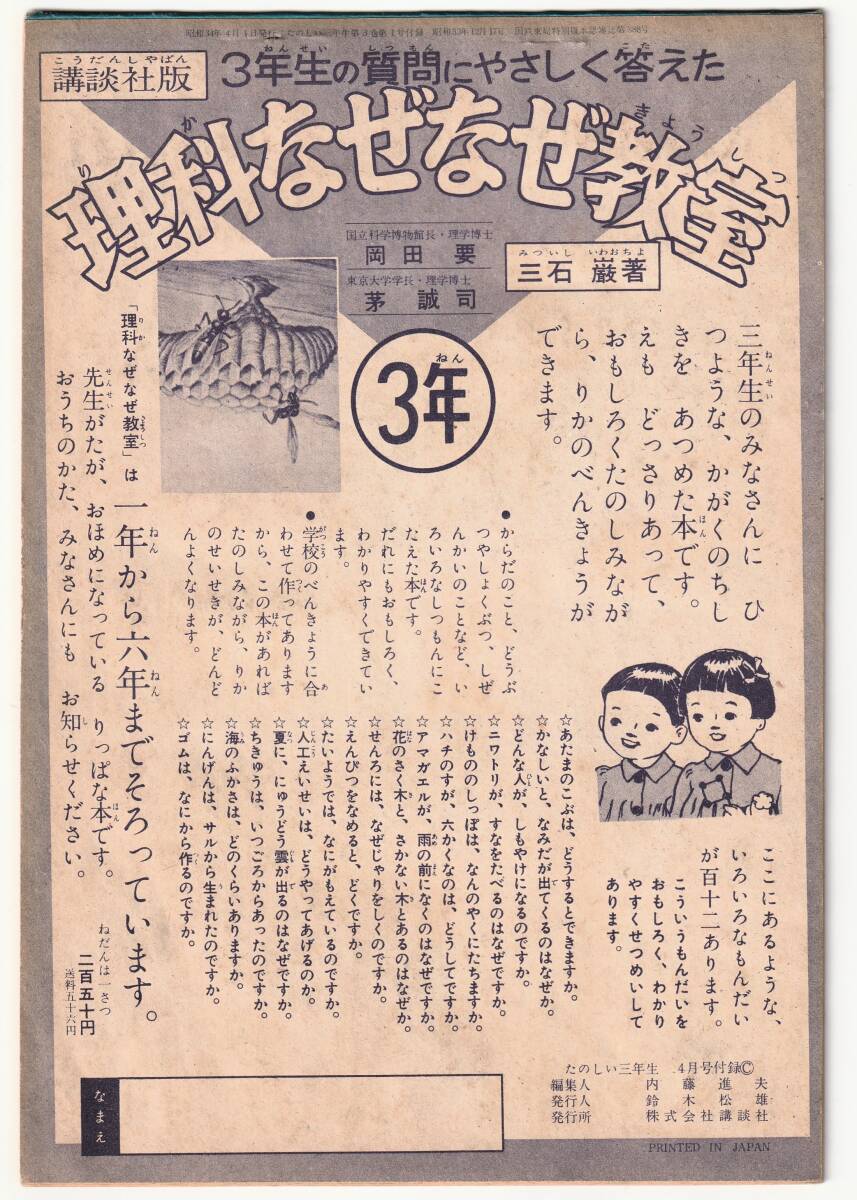 昭和34年4月1日発行 たのしい三年生第3巻第1号付録 昭和33年12月17日 国鉄東局特別扱承認雑誌第 号
講談社版
こうだんしゃばん
3年生の質問にやさしく答えた
ねんせい しつもん こた
理科なぜなぜ教室
り か きょう しつ
国立科学博物館長・理学博士
岡田 要
東京大学学長・理学博士
茅 誠司
三石 巌著
みついし いわおちよ
3年
ねん
三年生のみなさんに ひ
つような、かがくのちし
きを あつめた本です。
えも どっさりあって、
おもしろくたのしみなが
ら、りかのべんきょうが
できます。
●からだのこと、どうぶ
つやしょくぶつ、しぜ
んかいのことなど、い
ろいろなしつもんにこ
たえた本です。
だれにもおもしろく、
わかりやすくできてい
ます。
●学校のべんきょうに合
わせて作ってあります
から、この本があれば
たのしみながら、りか
のせいせきが、どんど
んよくなります。
「理科なぜなぜ教室」は
一年から六年までそろっています。
先生がたが、おほめになっている りっぱな本です。
おうちのかた、みなさんにも お知らせください。
ねだんは一さつ
二百五十円
送料五十六円
ここにあるような、
いろいろなもんだい
が百十二あります。
こういうもんだいを
おもしろく、わかり
やすくせつめいして
あります。
☆あたまのこぶは、どうするとできますか。
☆かなしいと、なみだが出てくるのはなぜか。
☆どんな人が、しもやけになるのですか。
☆ニワトリが、すなをたべるのはなぜですか。
☆けもののしっぽは、なんのやくにたちますか。
☆ハチのすが、六かくなのは、どうしてですか。
☆アマガエルが、雨の前になくのはなぜですか。
☆花のさく木と、さかない木とあるのはなぜか。
☆せんろには、なぜじゃりをしくのですか。
☆えんぴつをなめると、どくですか。
☆たいようでは、なにがもえているのですか。
☆人工えいせいは、どうやってあげるのか。
☆夏に、にゅうどう雲が出るのはなぜですか。
☆ちきゅうは、いつごろからあったのですか。
☆海のふかさは、どのくらいありますか。
☆にんげんは、サルから生まれたのですか。
☆ゴムは、なにから作るのですか。
なまえ
たのしい三年生 4月号付録©
編集人 内藤進夫
発行人 鈴木松雄
発行所 株式会社講談社
PRINTED IN JAPAN